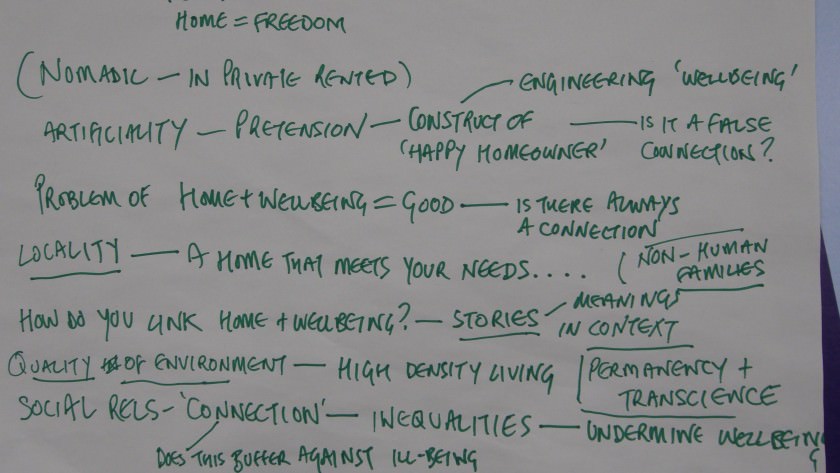 HOME = FREEDOM
(NOMADIC — IN PRIVATE RENTED)
ENGINEERING 'WELLBEING'
ARTIFICIALITY — PRETENSION — CONSTRUCT OF 'HAPPY HOMEOWNER' — IS IT A FALSE CONNECTION?
PROBLEM OF HOME + WELLBEING = GOOD — IS THERE ALWAYS A CONNECTION
LOCALITY — A HOME THAT MEETS YOUR NEEDS....
(NON-HUMAN FAMILIES
HOW DO YOU LINK HOME + WELLBEING? — STORIES — MEANINGS IN CONTEXT
QUALITY OF ENVIRONMENT — HIGH DENSITY LIVING
PERMANENCY + TRANSCIENCE
SOCIAL RELS - 'CONNECTION' — INEQUALITIES — UNDERMINE WELLBEING
DOES THIS BUFFER AGAINST ILL-BEING